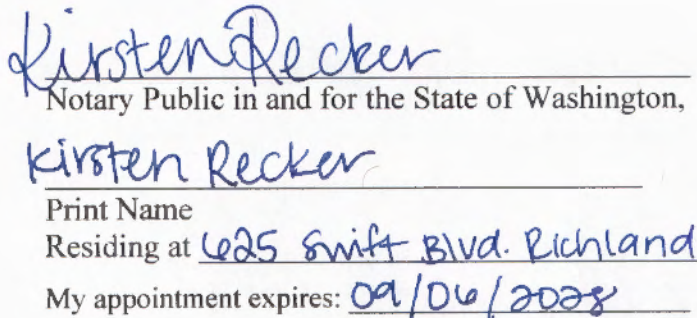 Kirsten Recker
Notary Public in and for the State of Washington,
Kirsten Recker
Print Name
Residing at 625 Swift Blvd. Richland
My appointment expires: 09/06/2028